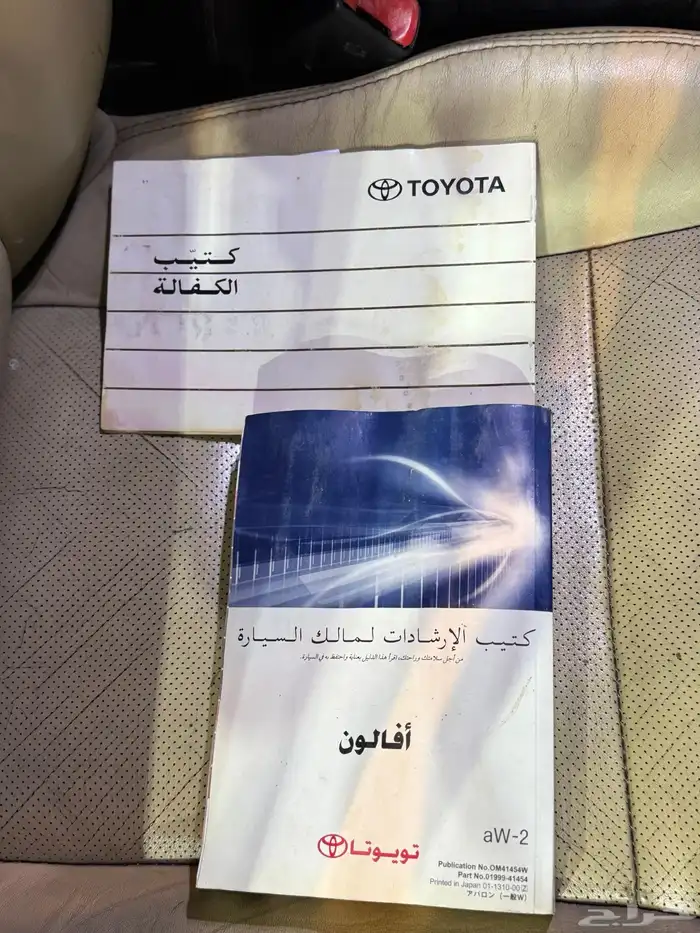 TOYOTA
كتيّب
الكفالة
كتيب الإرشادات لمالك السيارة
من أجل سلامتك وراحتك، اقرأ هذا الدليل بعناية واحتفظ به في السيارة.
أفالون
aW-2
تويوتا
Publication No.OM41454W
Part No.01999-41454
Printed in Japan 01-1310-00 Z
アバロン (一般W)
حراج